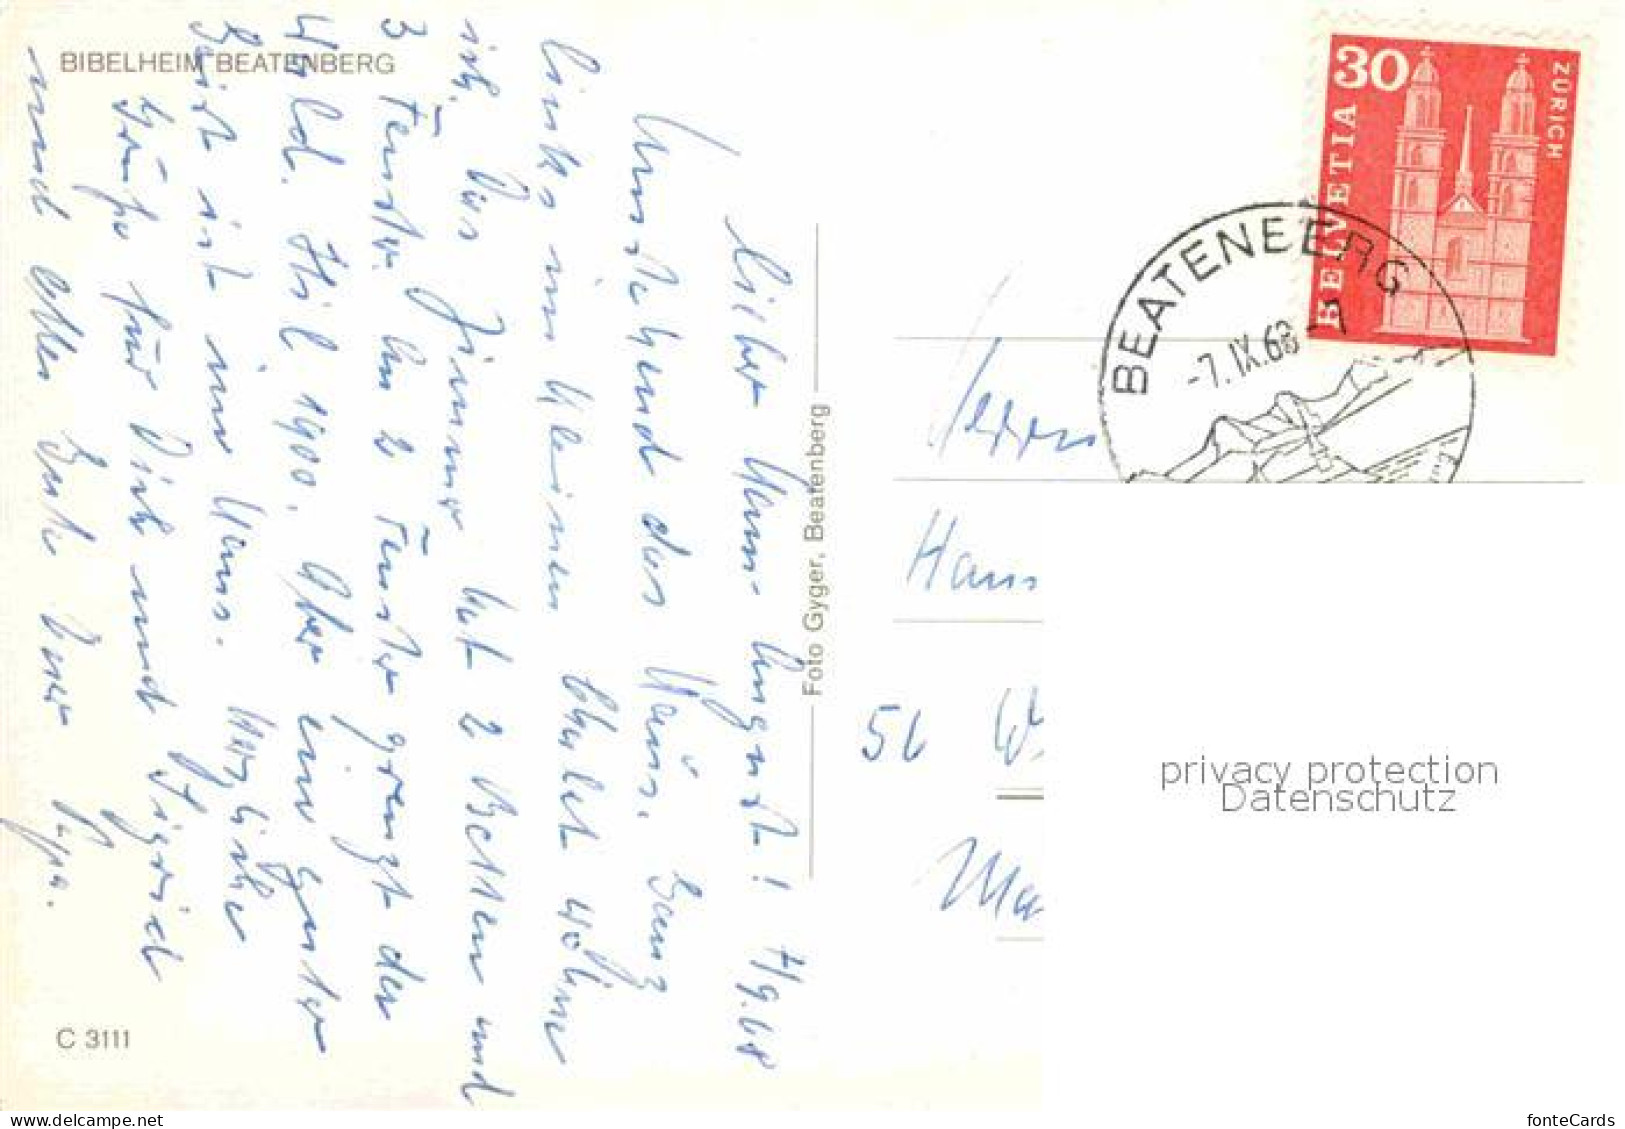 BIBELHEIM BEATENBERG
Lieber Hans-August! 7/9.68
Umstehend das Haus. Ganz
links im kleinen Chalet wohne
ich. Das Zimmer hat 2 Betten und
3 Fenster. An 2 Fenster grenzt der
Wald. 1900. Aber ein guter
Geist ist im Haus. Herzliche
Grüße für Dich und Sigrid
und alles Gute Euer Papa.
C 3111
Foto Gyger, Beatenberg
30
HELVETIA
ZÜRICH
BEATENBERG
-7.IX.68-7
Herrn
Hans
56 W
Ma
privacy protection
Datenschutz
fonteCards